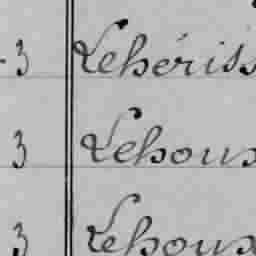 3 Lehériss
3 Lehoux
3 Lehoux